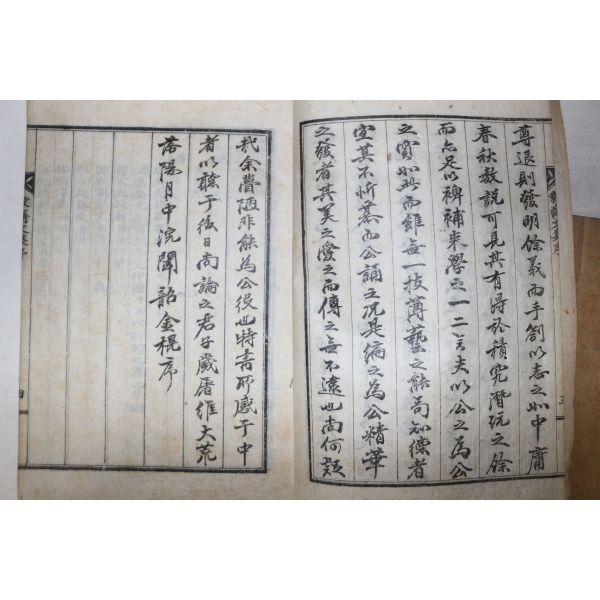 尊退則發明餘義而手劄以志之如中庸
春秋敖說可見其有得於積究潛玩之餘
而亦足以裨補來學之一二言夫以公之為公
之實如此而雖無一技薄藝之能尚知標者
宜其不忻慕而公誦之况是編之為公精華
之發者其美之愛之而傳之無不遠也尚何疑
哉余聾陋非能為公役也特書所感于中
者以聽于後日尚論之君子歲屠維大荒
落陽月中浣聞韶金榥序
三
四